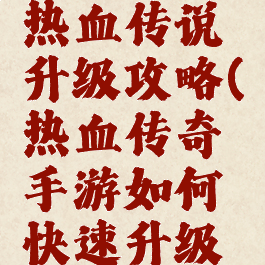 热血传说
升级攻略(
热血传奇
手游如何
快速升级